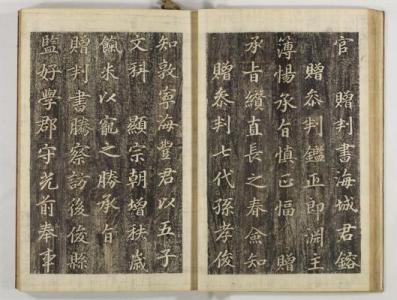 官　贈判書海城君鎔
贈參判鑑正郎淵主
簿惕承旨慎正愊贈
承旨纘直長之春僉知
贈參判七代孫孝俊
知敦寧海豊君以五子
文科　顯宗朝增秩歲
餼米以寵之勝承旨
贈判書勝察訪後俊縣
監好學郡守光前奉事